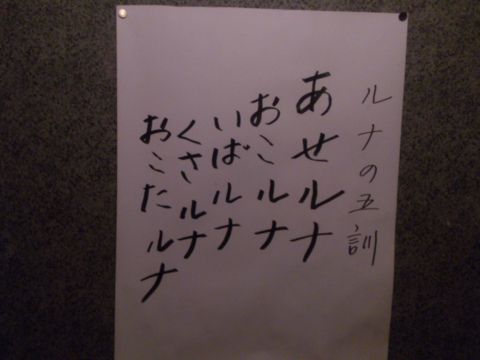 ルナの五訓
あせルナ
おこルナ
いばルナ
くさルナ
おこたルナ